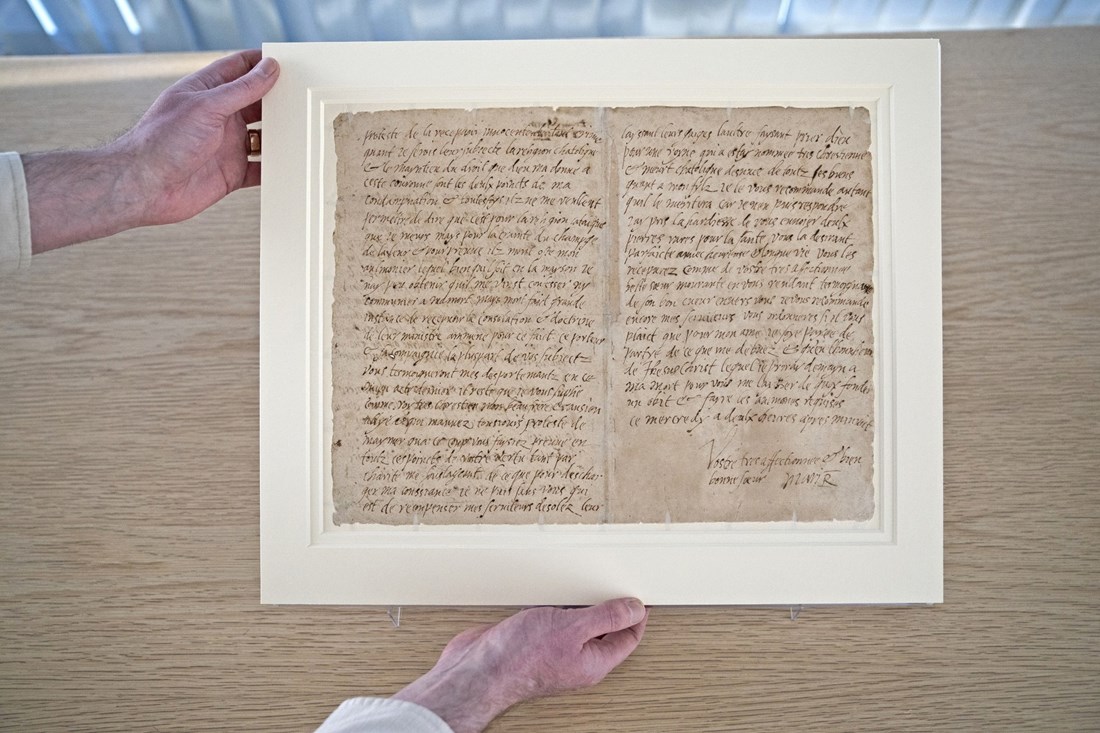 proteste de la recepvoir innocente de tout crime
quant je serois leur subjecte la religion chatolique
& le mayntien du droit que dieu ma donne a
ceste couronne sont les deulx poincts de ma
condampnation & toutesfoys ilz ne me veulent
permettre de dire que cest pour la religion catolique
que je meurs mays pour la crainte du champge
de la leur & pour preuve ilz mont oste mon
aumonier lequel bien quil soit en la mayson je
nay peu obtenir quil me vinst confesser ny
communier a ma mort mays mont faict grande
instance de recepvoir la consolation & doctrine
de leur ministre ammene pour ce faict ce porteur
& sa compaignie la pluspart de vos subjectz
vous tesmoigneront mes desportemantz en ce
myen acte dernier il reste que je vous suplie
comme roy tres chrestien mon beau frere & ansien
allye & qui mavvez tousjours proteste de
maymer qua ce coup vous faysiez preuve en
toutz ces poincts de vostre vertu tant par
charite me soulageant de ce que pour deschar
ger ma conssiance je ne puis sans vous qui
est de recompenser mes serviteurs desolez leur
laysant leurs gaiges laultre faysant prier dieu
pour une royne qui a estay nommee tres chrestienne
& meurt chatolique desnuee de toutz ses biens
quant a mon filz je le vous recommande autant
quil le meritera car je nen puis respondre
Jay pris la hardiesse de vous envoier deulx
pierres rares pour la sante vous la desirant
parfaicte avvec heureuse & longue vie vous les
recepvrez comme de vostre tres affectionnee
belle sœur mourante en vous rendant tesmoygnage
de son bon cueur envers vous je vous recommande
encore mes serviteurs vous ordonneres si il vous
plaict que pour mon ame je soye payee de
partye de ce que me debvez &
de Jhesus Christ lequel je priray demayn a
ma mort pour vous me laysser de quoy fonder
un obit & fayre les aulmosnes requises
ce mercredy a deulx heures apres minuit
Vostre tres affectionnee & bien
bonne sœur MARIE R